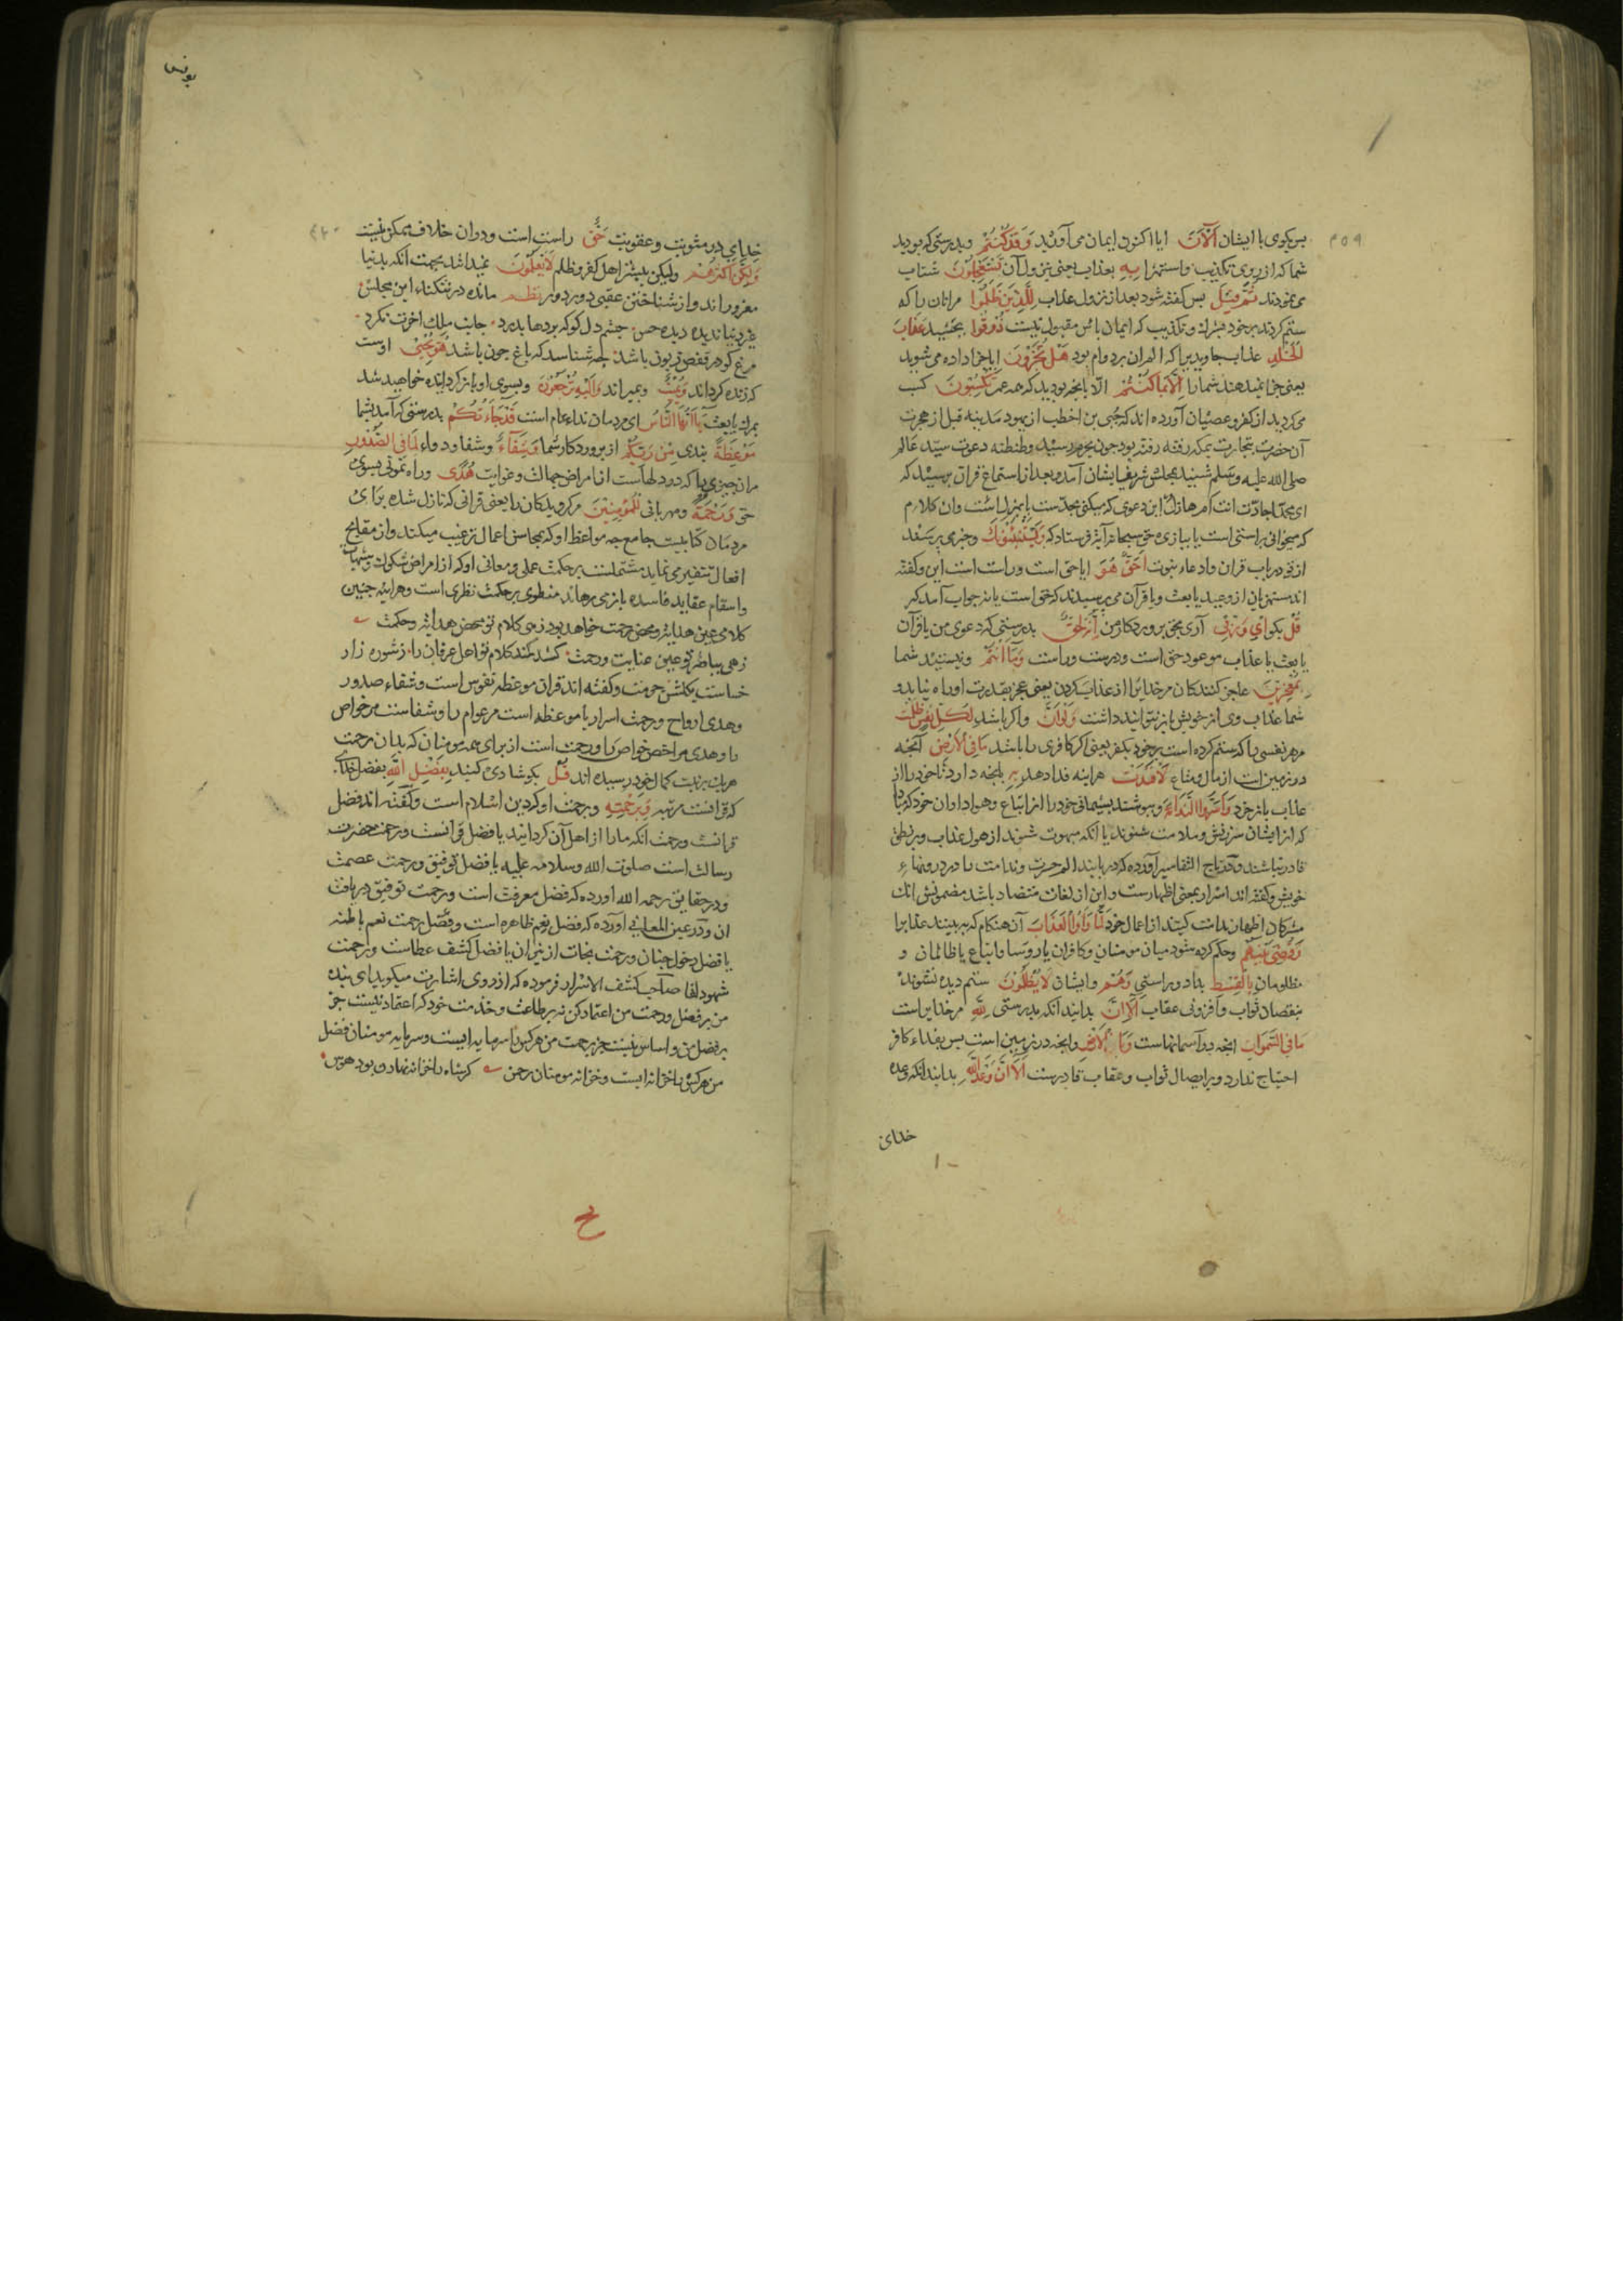 ٣٥٩
پس بکوی با ایشان آلآن ایا اکنون ایمان می آورید وقد کنتم وبدرستی که بودید
شما که از روی تکذیب واستهزا به بعذاب یعنی بنزول آن تستعجلون شتاب
می نمودند ثم قیل پس کفته شود بعد از نزول عذاب للذین ظلموا مرانان را که
ستم کردند بر خود بشرک وتکذیب که ایمان یأس مقبول نیست ذوقوا بچشید عذاب
الخلد عذاب جاوید را که الم ان بر دوام بود هل تجزون ایا جزا داده می شوید
یعنی جزا نمیدهند شما را الا بما کنتم الا بانچه بودید که همه عمر تکسبون کسب
می کردید از کفر وعصیان آورده اند که حیی بن اخطب از یهود مدینه قبل از هجرت
آن حضرت بتجارت بمکه رفته بود چون بحرم رسید وطنطنه دعوت سید عالم
صلی الله علیه وسلم شنید بمجلس شریف ایشان آمد وبعد از استماع قران پرسید که
ای محمد اجاد انت ام هازل این دعوی که میکنی بجدست یا بهزل است وان کلام
که میخوانی براستی است یا ببازی حق سبحانه آیة فرستاد که ویستنبئونک وخبر می پرسند
از تو در باب قران وادعاء نبوت احق هو ایا حق است وراست است این وکفته
اند مستهزیان از وعید یا بعث ویا قرآن می پرسیدند که حق است یا نه جواب آمد که
قل بکو ای وربی آری بحق پروردکار من انه لحق بدرستی که دعوی من یا قرآن
یا بعث یا عذاب موعود حق است ودرست وراست وما انتم ونیستید شما
بمعجزین عاجز کنندکان مر خدایرا از عذاب کردن یعنی عجز بقدرت او راه نیابد و
شما عذاب وی از خویش باز نتوانید داشت ولو ان واکر باشد لکل نفس ظلمت
مر هر نفسی را که ستم کرده است بر خود بکفر یعنی اکر کافری را باشد ما فی الارض آنچه
در زمین است از مال ومتاع لافتدت هراینه فدا دهد به بانچه دارد تا خود را از
عذاب باز خرد واسروا الندامة وبپوشند پشیمانی خود را از اتباع وهواداران خود که تا
که از ایشان سرزنش وملامت شنوند یا انکه مبهوت شوند از هول عذاب وبر نطق
قادر نباشند ودر تاج التفاسیر آورده که در یابند الم حسرت وندامت را در درونهاء
خویش وکفته اند اسرار بمعنی اظهارست واین از لغات متضاد باشد مضمونش انک
مشرکان اظهار ندامت کنند از اعمال خود لما راوا العذاب آن هنکام که ببینند عذابرا
وقضی بینهم وحکم کرده شود میان مومنان وکافران یا روسا واتباع یا ظالمان و
مظلومان بالقسط بداد وبراستی وهم وایشان لا یظلمون ستم دیده نشوند
بنقصان ثواب وافزونی عقاب الا ان بدانید انکه بدرستی لله مر خدایراست
ما فی السموات انچه در آسمانهاست وما الارض وانچه در زمین است پس بفداء کافر
احتیاج ندارد وبر ایصال ثواب وعقاب قادرست الا ان وعد الله بدانید انکه وعده
خدای
یونس
خدای در مثوبت وعقوبت حق راست است ودران خلاف ممکن نیست
ولکن اکثرهم ولیکن بیشتر اهل کفر وظلم لا یعلمون نمیدانند بجهت انکه بدنیا
مغرور اند واز شناختن عقبی دور دور نظم مانده در تنکناء این مجلس
غیر دنیا ندیده دیده حس چشم دل کو که پردها بدرد جانب ملک اخرت نکرد
مرغ کو در قفص زبون باشد چه شناسد که باغ چون باشد هو یحیی اوست
که زنده کرداند ویمیت وبمیراند والیه ترجعون وبسوی او بازکردانده خواهید شد
بمرک یا بعث یا ایها الناس ای مردمان نداء عام است قد جاءتکم بدرستی که آمد بشما
موعظة پندی من ربکم از پروردکار شما وشفاء وشفا ودواء لما فی الصدور
مران چیزی را که در دلهاست از امراض جهالت وغوایت هدی وراه نمونی بسوی
حق ورحمة ومهربانی للمؤمنین مر کرویدکان را یعنی قرانی که نازل شده برای
مردمان کتابیست جامع چه مواعظ او که بمحاسن اعمال ترغیب میکند واز مقابح
افعال تنفیر می نماید مشتملست بر حکمت عملی ومعانی او که از امراض شکوک وشبهات
واسقام عقاید فاسده باز می رهاند منطوی بر حکمت نظری است وهراینه چنین
کلامی عین هدایت ومحض رحمت خواهد بود زهی کلام تو محض هدایت وحکمت
زهی پیام تو عین عنایت ورحمت کشد کمند کلام تو اهل عرفان را ز شوره زار
خساست بکلشن حرمت وکفته اند قران موعظه نفوس است وشفاء صدور
وهدی ارواح ورحمت اسرار یا موعظه است مر عوام را وشفاست مر خواص
را وهدی مر اخص خواص را ورحمت است از برای همه مومنان که بدان رحمت
هر یک بمرتبت کمال خود رسیده اند قل بکو شادی کنید بفضل الله بفضل خدای
که قرانست مرتبه وبرحمته وبرحمت او که دین اسلام است وکفته اند فضل
قرانست ورحمت انکه ما را از اهل آن کردانید یا فضل قرانست ورحمت حضرت
رسالت است صلوت الله وسلامه علیه یا فضل توفیق ورحمت عصمت
ودر حقایق رحمه الله اورده که فضل معرفت است ورحمت توفیق دریافت
ان ودر عین المعانی آورده که فضل نعم ظاهره است وفضل رحمت نعم باطنه
یا فضل دخول جنان ورحمت نجات از نیران یا فضل کشف عطاست ورحمت
شهود لقا صاحب کشف الاسرار فرموده که از روی اشارت میکوید ای بنده
من بر فضل ورحمت من اعتماد کن نه بر طاعت وخدمت خود که اعتماد نیست جز
بر فضل من واساس نیست جز برحمت من هر کس را سرمایه ایست وسرمایه مومنان فضل
من هر کس را خزانه ایست وخزانه مومنان رحمن کر شاه را خزانه نهادن بود هوس
ح